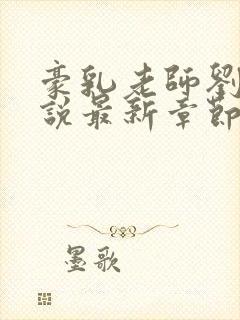 豪乳老師劉
說最新章節
墨歌